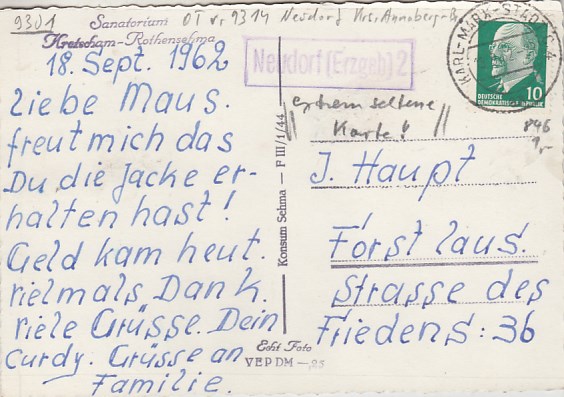 9301
Sanatorium OT v. 9314 Neudorf Krs. Annaberg-B.
Kretscham-Rothensehma
18. Sept. 1962
Liebe Maus.
freut mich das
Du die Jacke er-
halten hast!
Geld kam heut.
vielmals Dank.
viele Grüsse. Dein
Curdy. Grüsse an
Familie.
Neudorf (Erzgeb) 2
KARL-MARX-STADT
DEUTSCHE
DEMOKRATISCHE REPUBLIK
10
extrem seltene
Karte!
846
1,-
Konsum Sehma - P III/1/44
J. Haupt
Forst laus.
Strasse des
Friedens: 36
Echt Foto
VEP DM -,25